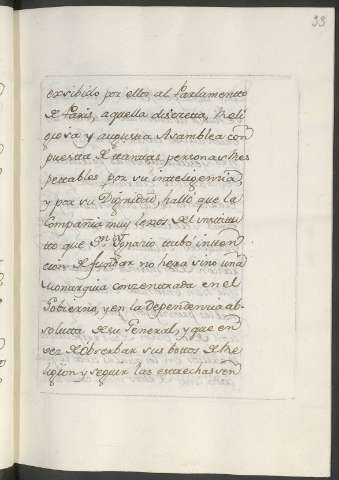 33
exsibido por ellos al Parlamento
de Paris, aquella discreta, Reli
giosa y augusta Asamblea com
puesta de tantas personas Res
petables por su inteligencia,
y por su Dignidad, halló que la
Compañia muy lexos del institu
to que Sn. Ignacio tubo inten
cion de fundar no hera sino una
Monarquia conzentrada en el
Gobierno, y en la dependencia ab
soluta de su General, y que en
vez de obserbar sus botos de Re
ligion y seguir las estrechas sen